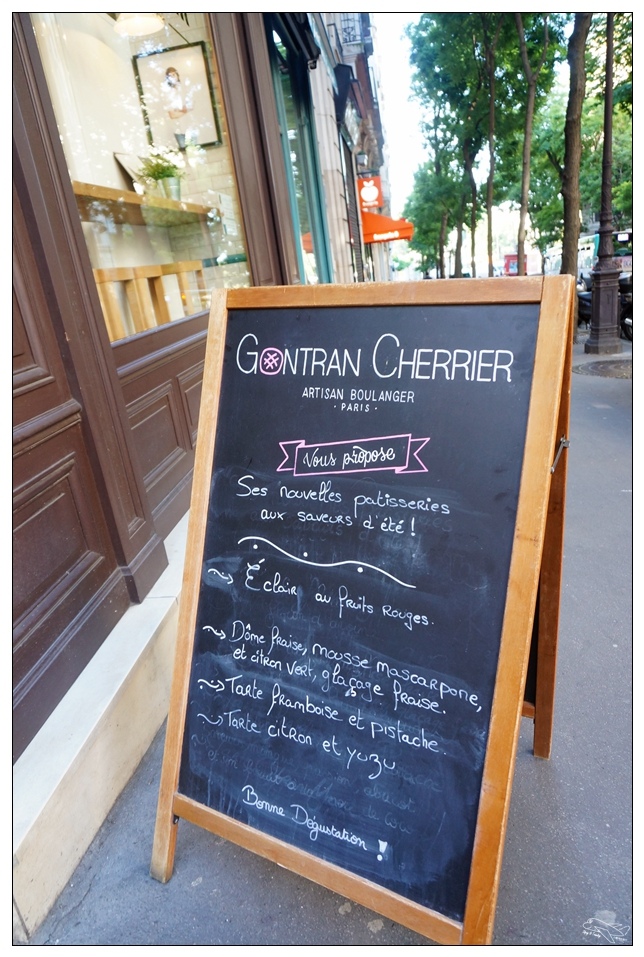 GONTRAN CHERRIER
ARTISAN BOULANGER
· PARIS ·
Vous propose
Ses nouvelles patisseries
aux saveurs d'été !
Éclair au fruits rouges.
Dôme fraise, mousse mascarpone,
et citron vert, glaçage fraise.
Tarte framboise et pistache.
Tarte citron et yuzu
Bonne Dégustation !